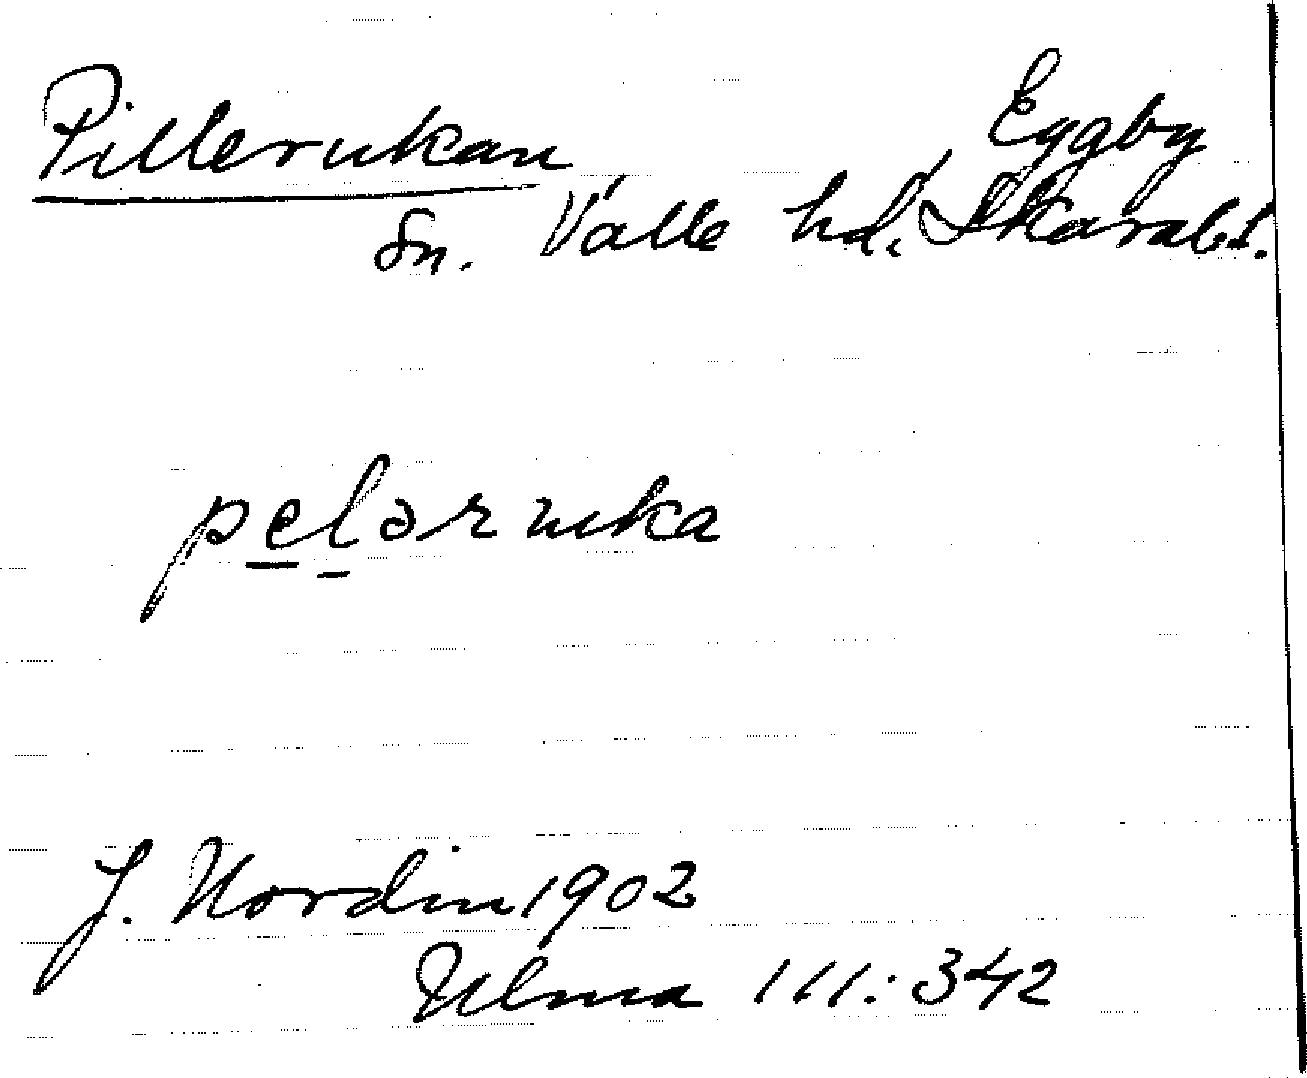 Pillerukan Eggby
Sn. Valle hd, Skarabl.
peləruka
J. Nordin 1902
Ulma 111:342